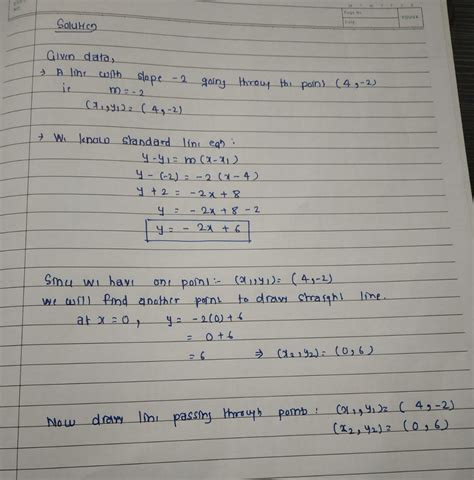 Solution
Page No.
Date
YOUVA
Given data,
→ A line with slope -2 going throug the point (4,-2)
ie m = -2
(x₁,y₁) = (4,-2)
→ We know standard line eqn:
y-y₁ = m(x-x₁)
y-(-2) = -2(x-4)
y+2 = -2x+8
y = -2x+8-2
y = -2x+6
Since we have one point:- (x₁,y₁) = (4,-2)
we will find another point to draw straight line.
at x=0, y = -2(0)+6
= 0+6
= 6 ⇒ (x₂,y₂) = (0,6)
Now draw line passing through points: (x₁,y₁) = (4,-2)
(x₂,y₂) = (0,6)